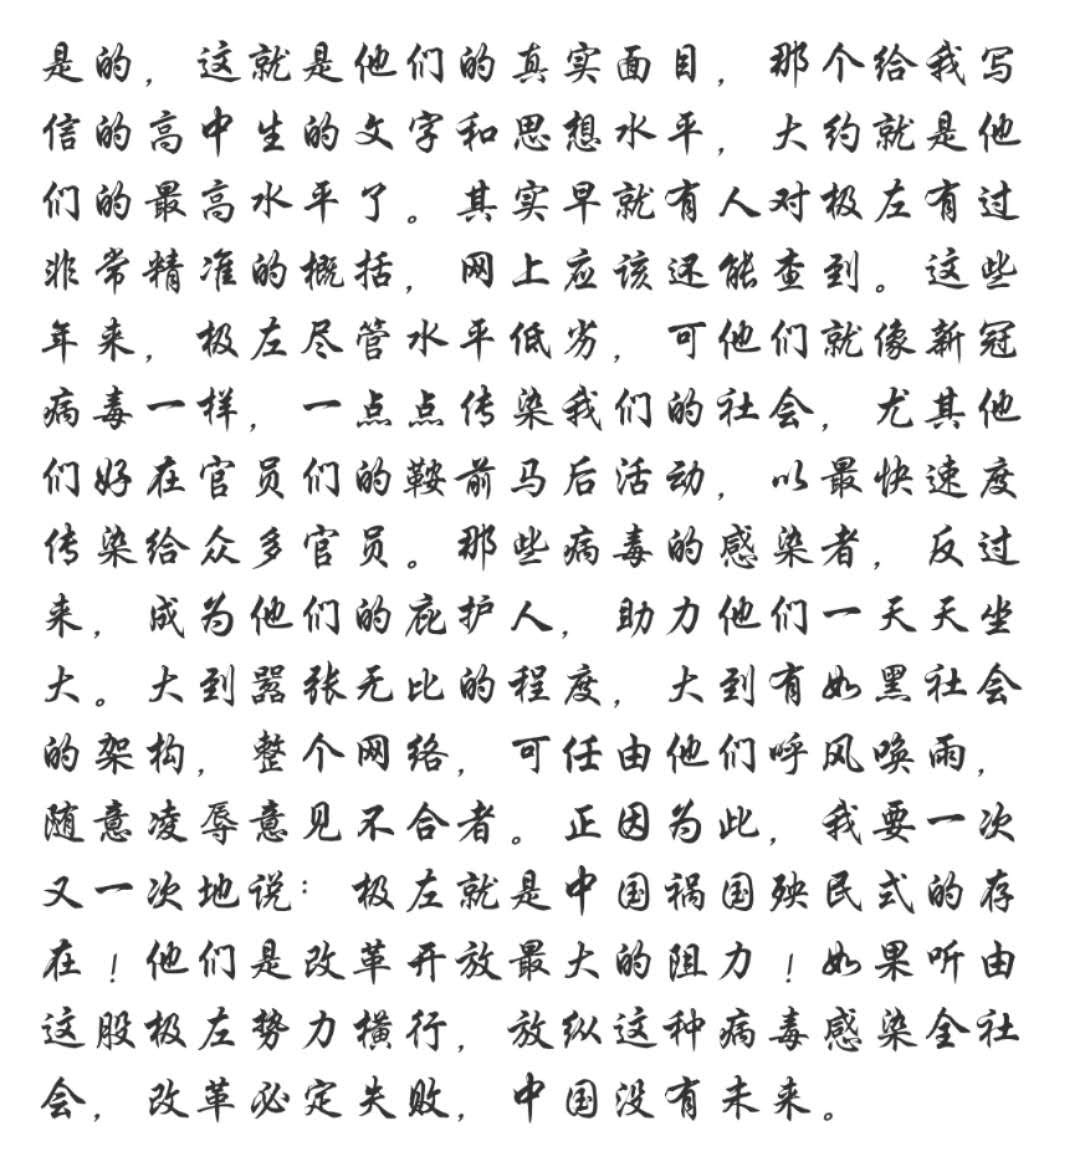 是的，这就是他们的真实面目，那个给我写
信的高中生的文字和思想水平，大约就是他
们的最高水平了。其实早就有人对极左有过
非常精准的概括，网上应该还能查到。这些
年来，极左尽管水平低劣，可他们就像新冠
病毒一样，一点点传染我们的社会，尤其他
们好在官员们的鞍前马后活动，以最快速度
传染给众多官员。那些病毒的感染者，反过
来，成为他们的庇护人，助力他们一天天坐
大。大到嚣张无比的程度，大到有如黑社会
的架构，整个网络，可任由他们呼风唤雨，
随意凌辱意见不合者。正因为此，我要一次
又一次地说：极左就是中国祸国殃民式的存
在！他们是改革开放最大的阻力！如果听由
这股极左势力横行，放纵这种病毒感染全社
会，改革必定失败，中国没有未来。